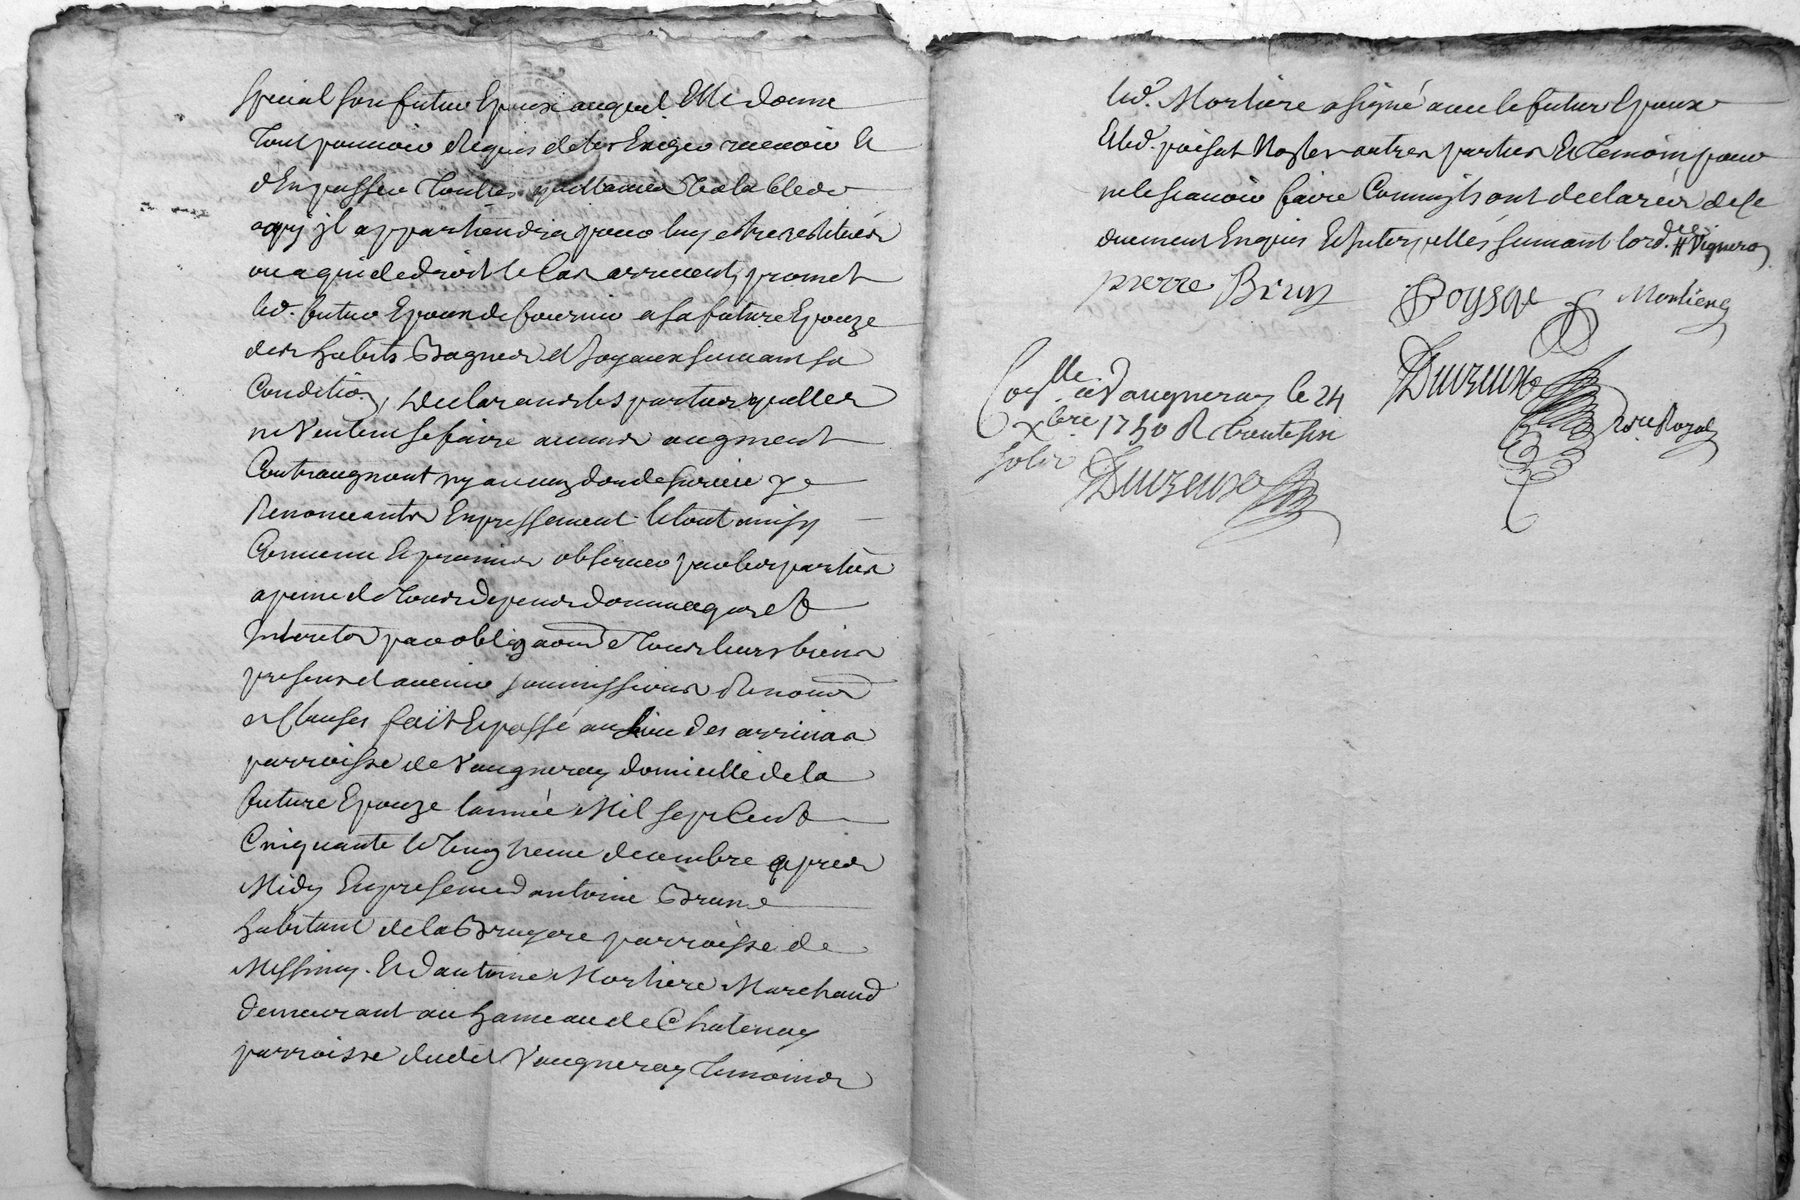 special son futur Epoux auquel Elle donne
Tout pouvoir Requis de les Exiger recevoir Et
d'En passer Toutes quittances valables
a qui il appartiendra pour luy estre restitués
ou a qui de droit le Cas arrivent, promet
led. futur Epoux de fournir a sa future Epouze
des habits Bagues et Joyaux suivant sa
Condition, Declarant les parties quelles
ne veulent se faire aucuns augment
Contraugment ny aucuns don de survie y
Renonceants Expressement. le tout ainsy
Convenu Et promis observer par les parties
a peine de Tous depens dommages et
Interets par obligaon de Tous leurs biens
presens et avenir soumissions Renonons
et Clauses fait Et passé au lieu des
parroisse de Vaugneray domicille de la
future Epouze l'année Mil sept Cent
Cinquante le decembre apres
Midy En presence d'antoine Brun
habitant de la Bruyere parroisse de
Messimy. Et d'antoine Mortiere Marchand
demeurant au hameau de Chatenay
parroisse dudit Vaugneray Temoins
led. Mortiere a signé avec le futur Epoux
Et led. les autres parties Et Temoin pour
ne le scavoir faire Comme ils ont declarés de Ce
duement Enquis Et Interpellés suivant lord.
pierre Brun
Mortiere
Conllé a Vaugneray le 24
xbre 1750 R trente six
sols
Nore Royal